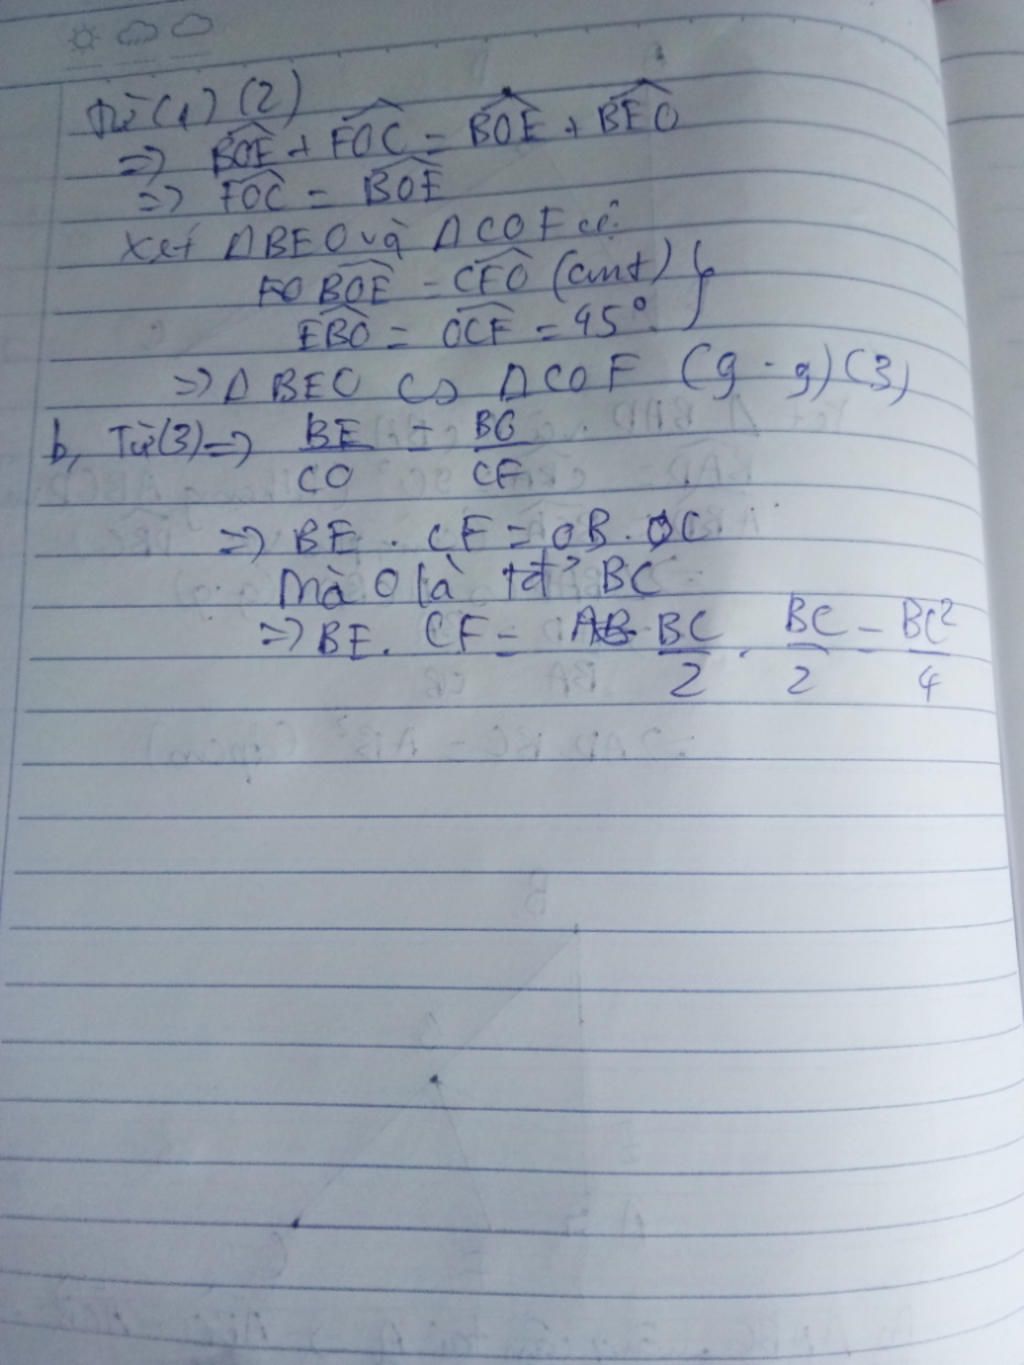 Từ (1) (2)
=> BOE + FOC = BOE + BEO
=> FOC = BOE
Xét ΔBEO và ΔCOF có:
BOE = CFO (cmt)
EBO = OCF = 45°
=> Δ BEO ∽ Δ COF (g - g) (3)
b, Từ (3) => BE/CO = BO/CF
=> BE . CF = OB . OC
Mà O là tđ² BC
=> BE . CF = BC/2 . BC/2 = BC²/4